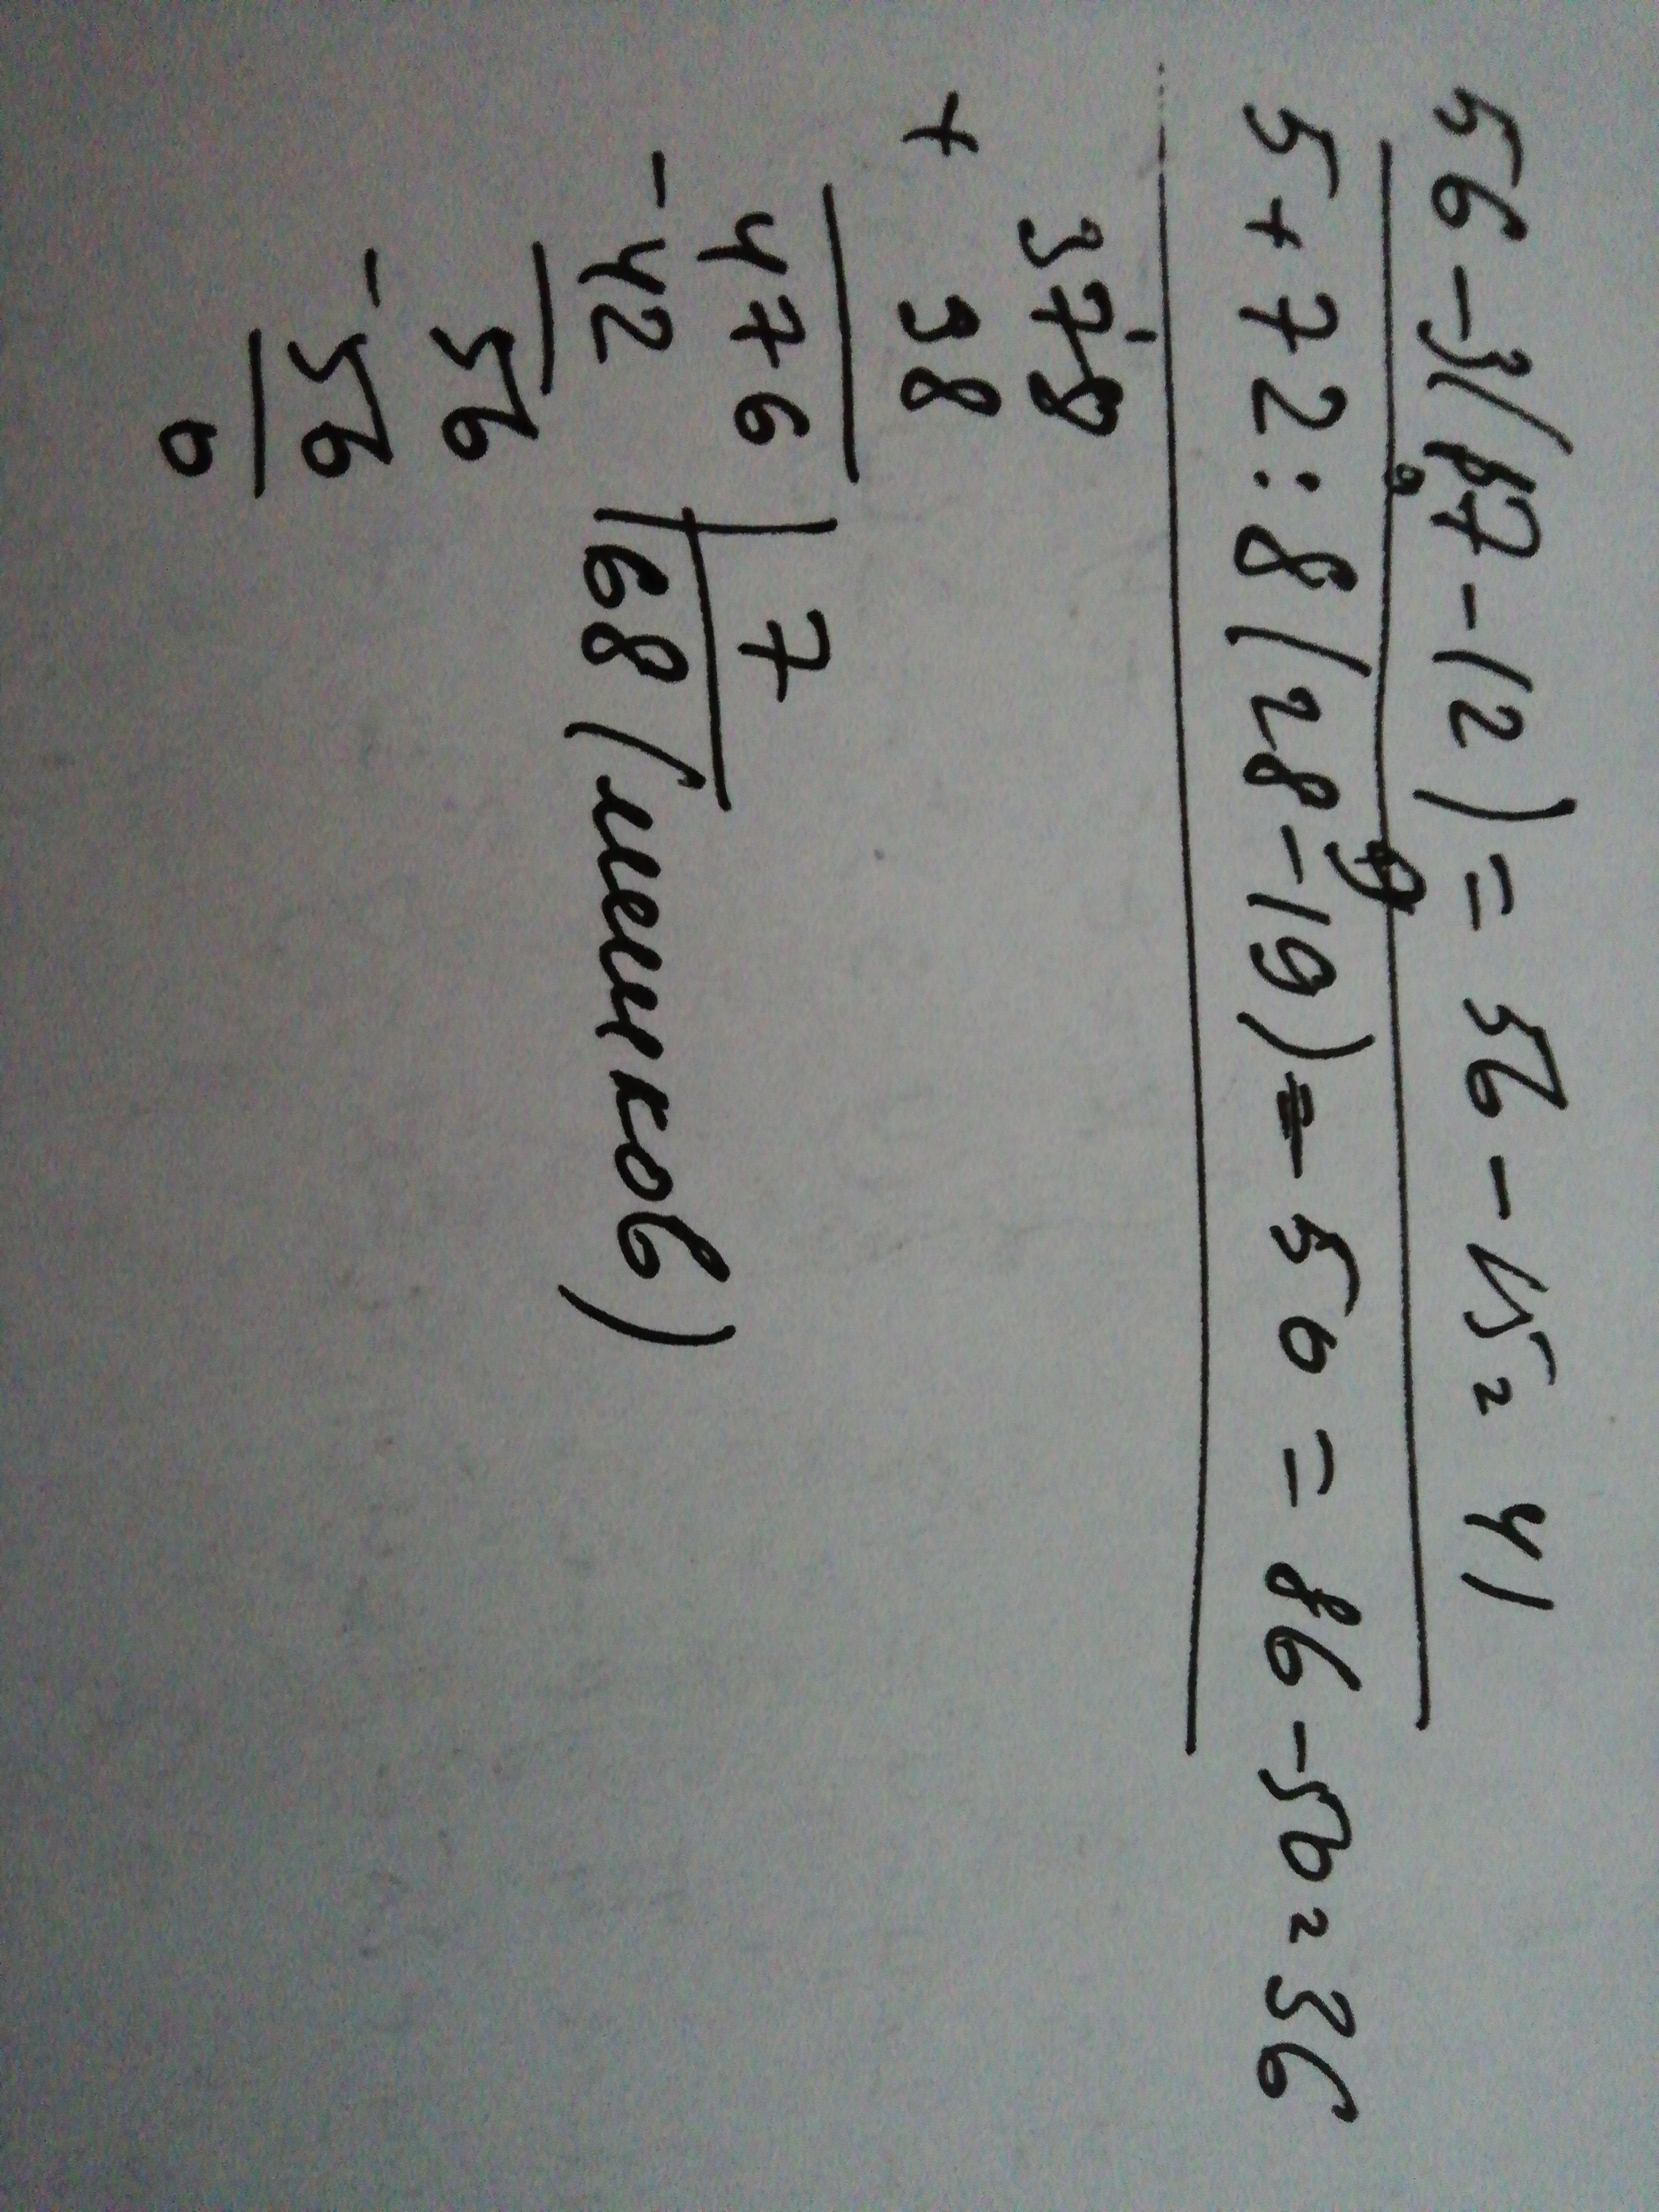 56-3(17-12)=56-15=41
9
5+72:8(28-19)-50=86-50=36
378
+
38
476 7
-42 68(мешков)
56
-56
0